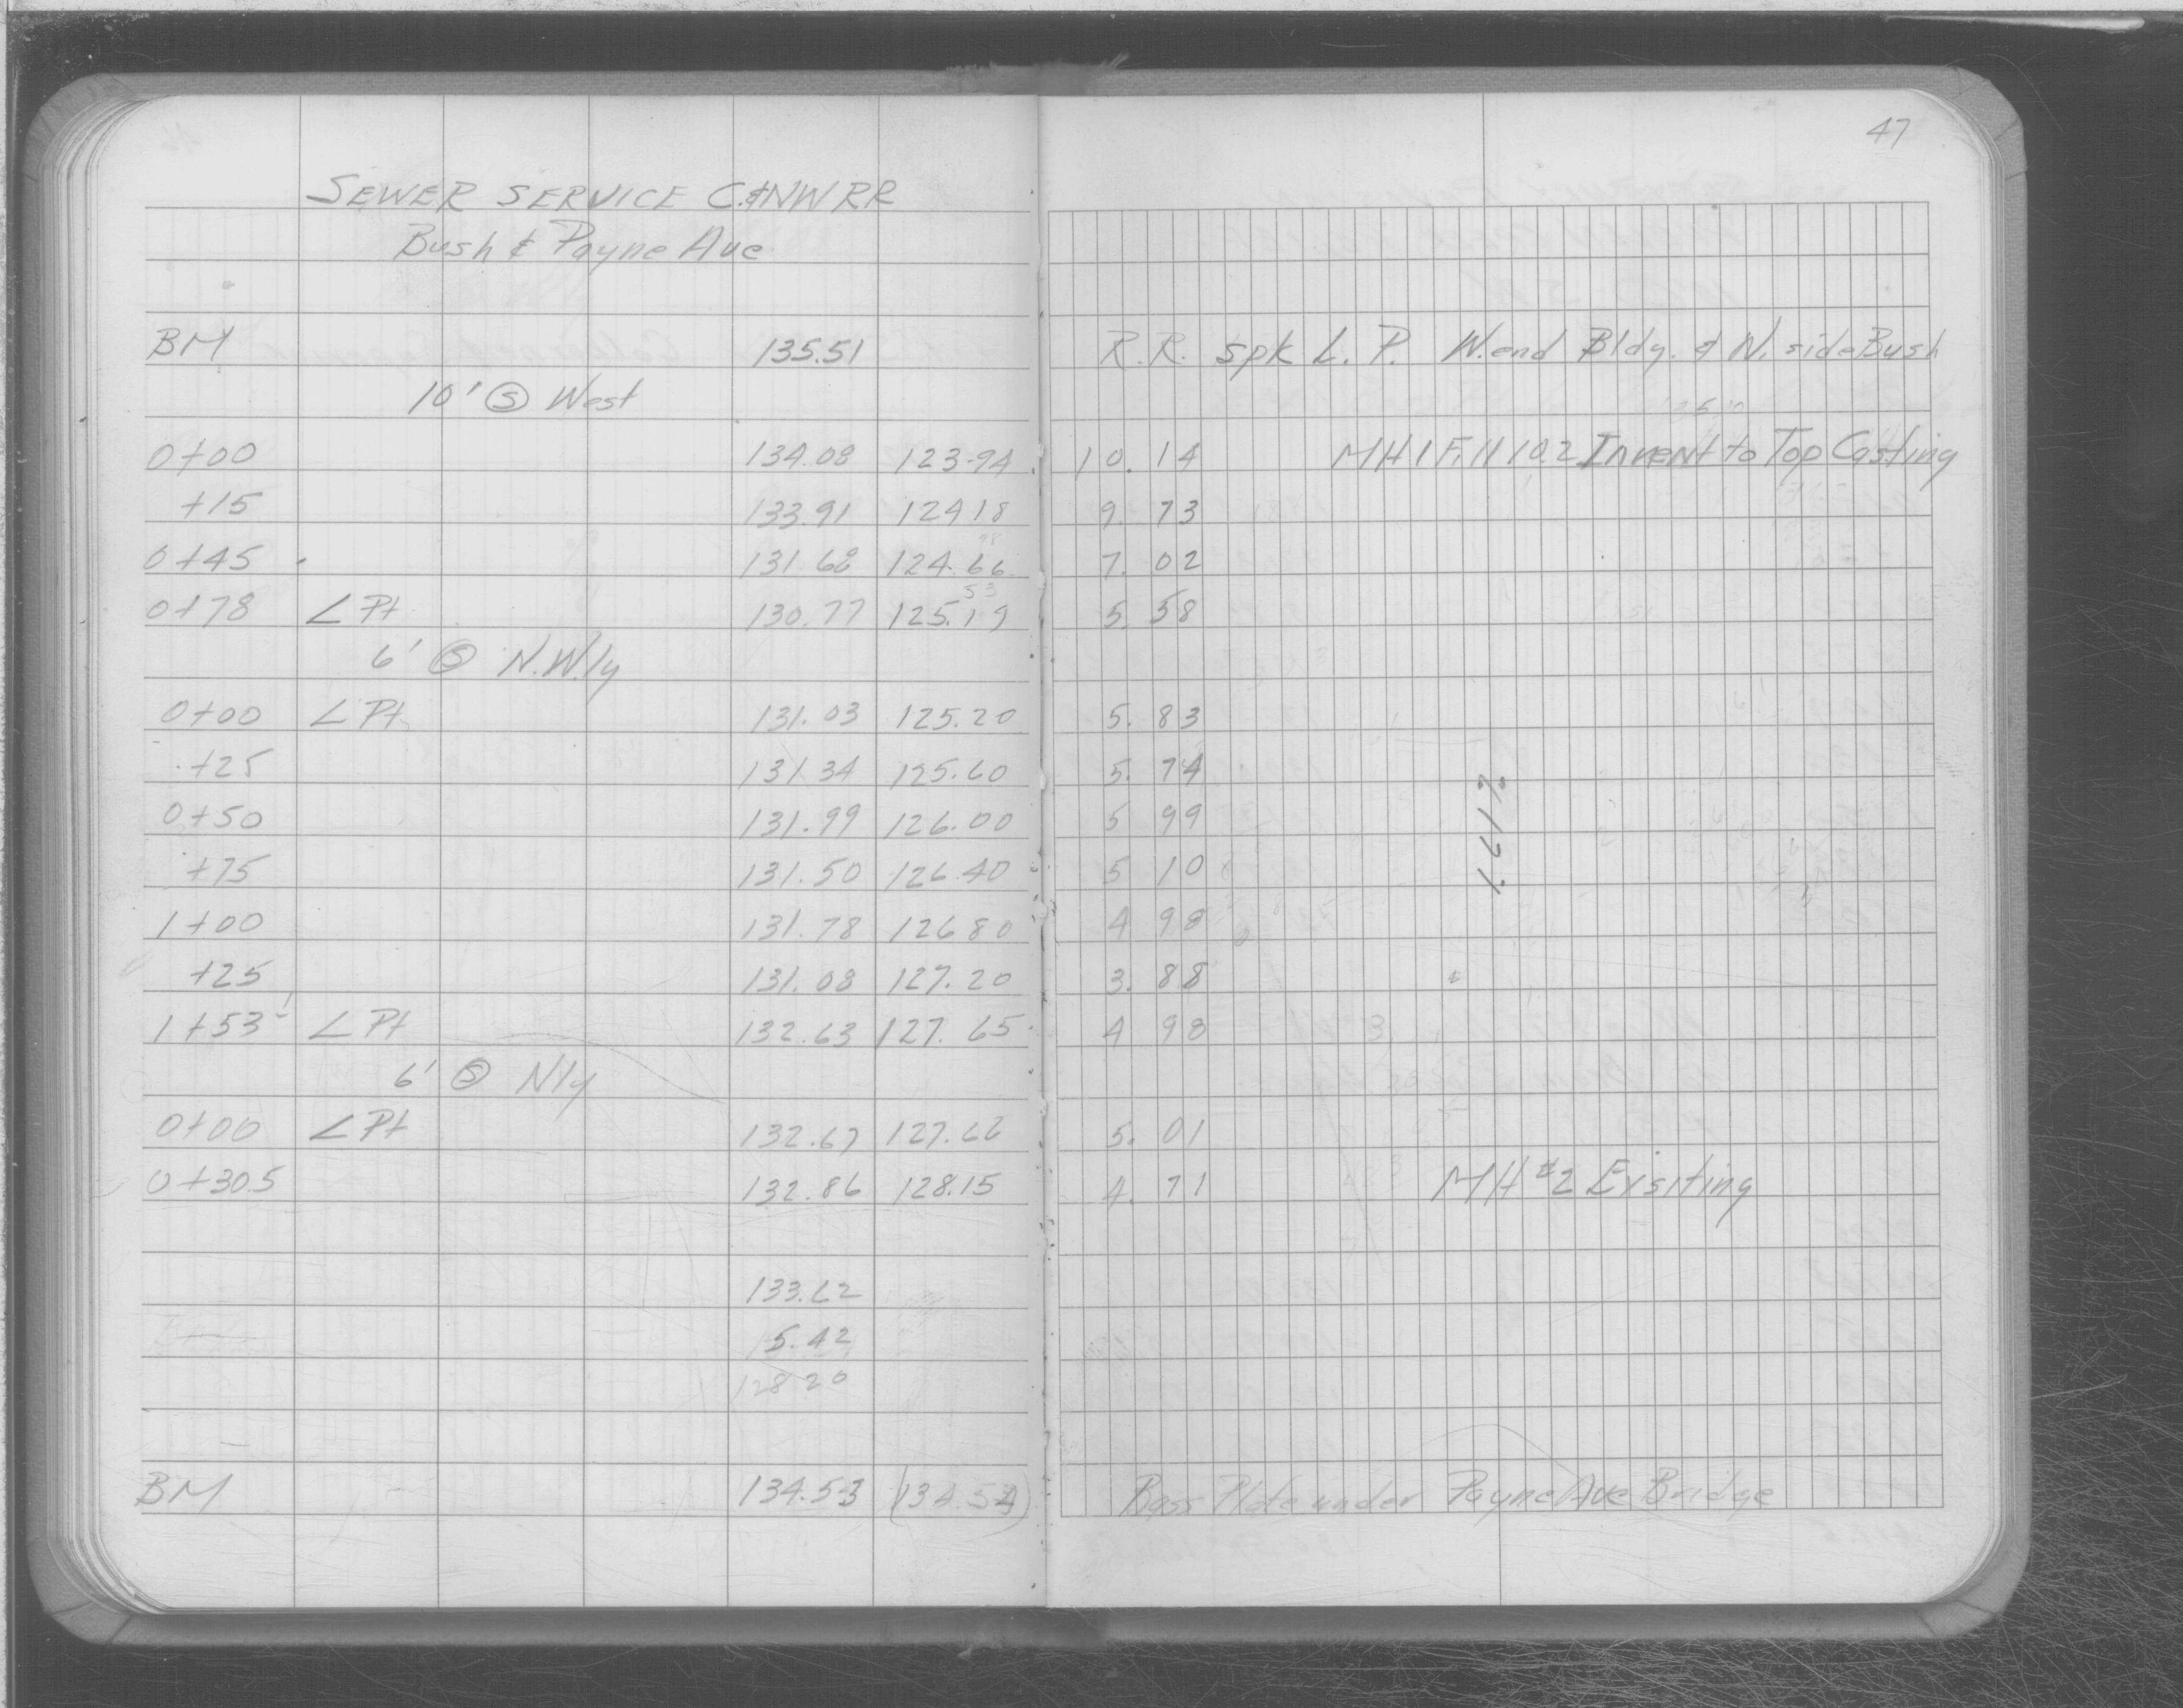 47
SEWER SERVICE C.&NWRR
Bush & Payne Ave
BM 135.51 R.R. Spk L.P. W.end Bldg. & N. side Bush
10' Ⓢ West
0+00 134.08 123.94 10.14 MH 1 F.11 10.2 Invent to Top Casting
+15 133.91 124.18 9.73
0+45 131.68 124.66 7.02
0+78 ∠ Pt 130.77 125.19 5.58
6' Ⓢ N.W.ly
0+00 ∠ Pt 131.03 125.20 5.83
+25 131.34 125.60 5.74
0+50 131.99 126.00 5 99
+75 131.50 126.40 5 10
1+00 131.78 126 80 4 98
+25 131.08 127.20 3.88
1+53 ∠ Pt 132.63 127.65 4 98
6' Ⓢ Nly
0+00 ∠ Pt 132.67 127.66 5.01
0+30.5 132.86 128.15 4.71 MH #2 Exsiting
133.62
5.42
128 20
BM 134.53 (134.54) Bass Plate under Payne Ave Bridge
1.61%